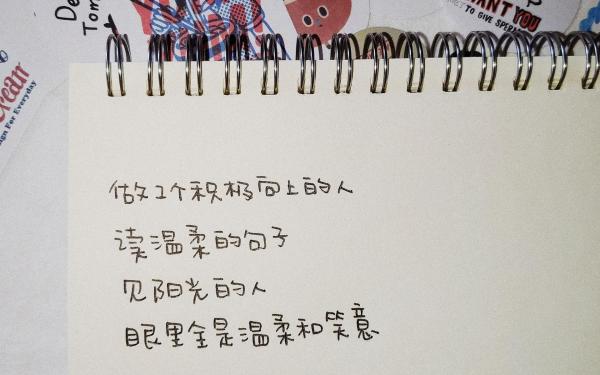 De
Tom
WANT YOU
TO GIVE
For Everyday
做1个积极向上的人
读温柔的句子
见阳光的人
眼里全是温柔和笑意